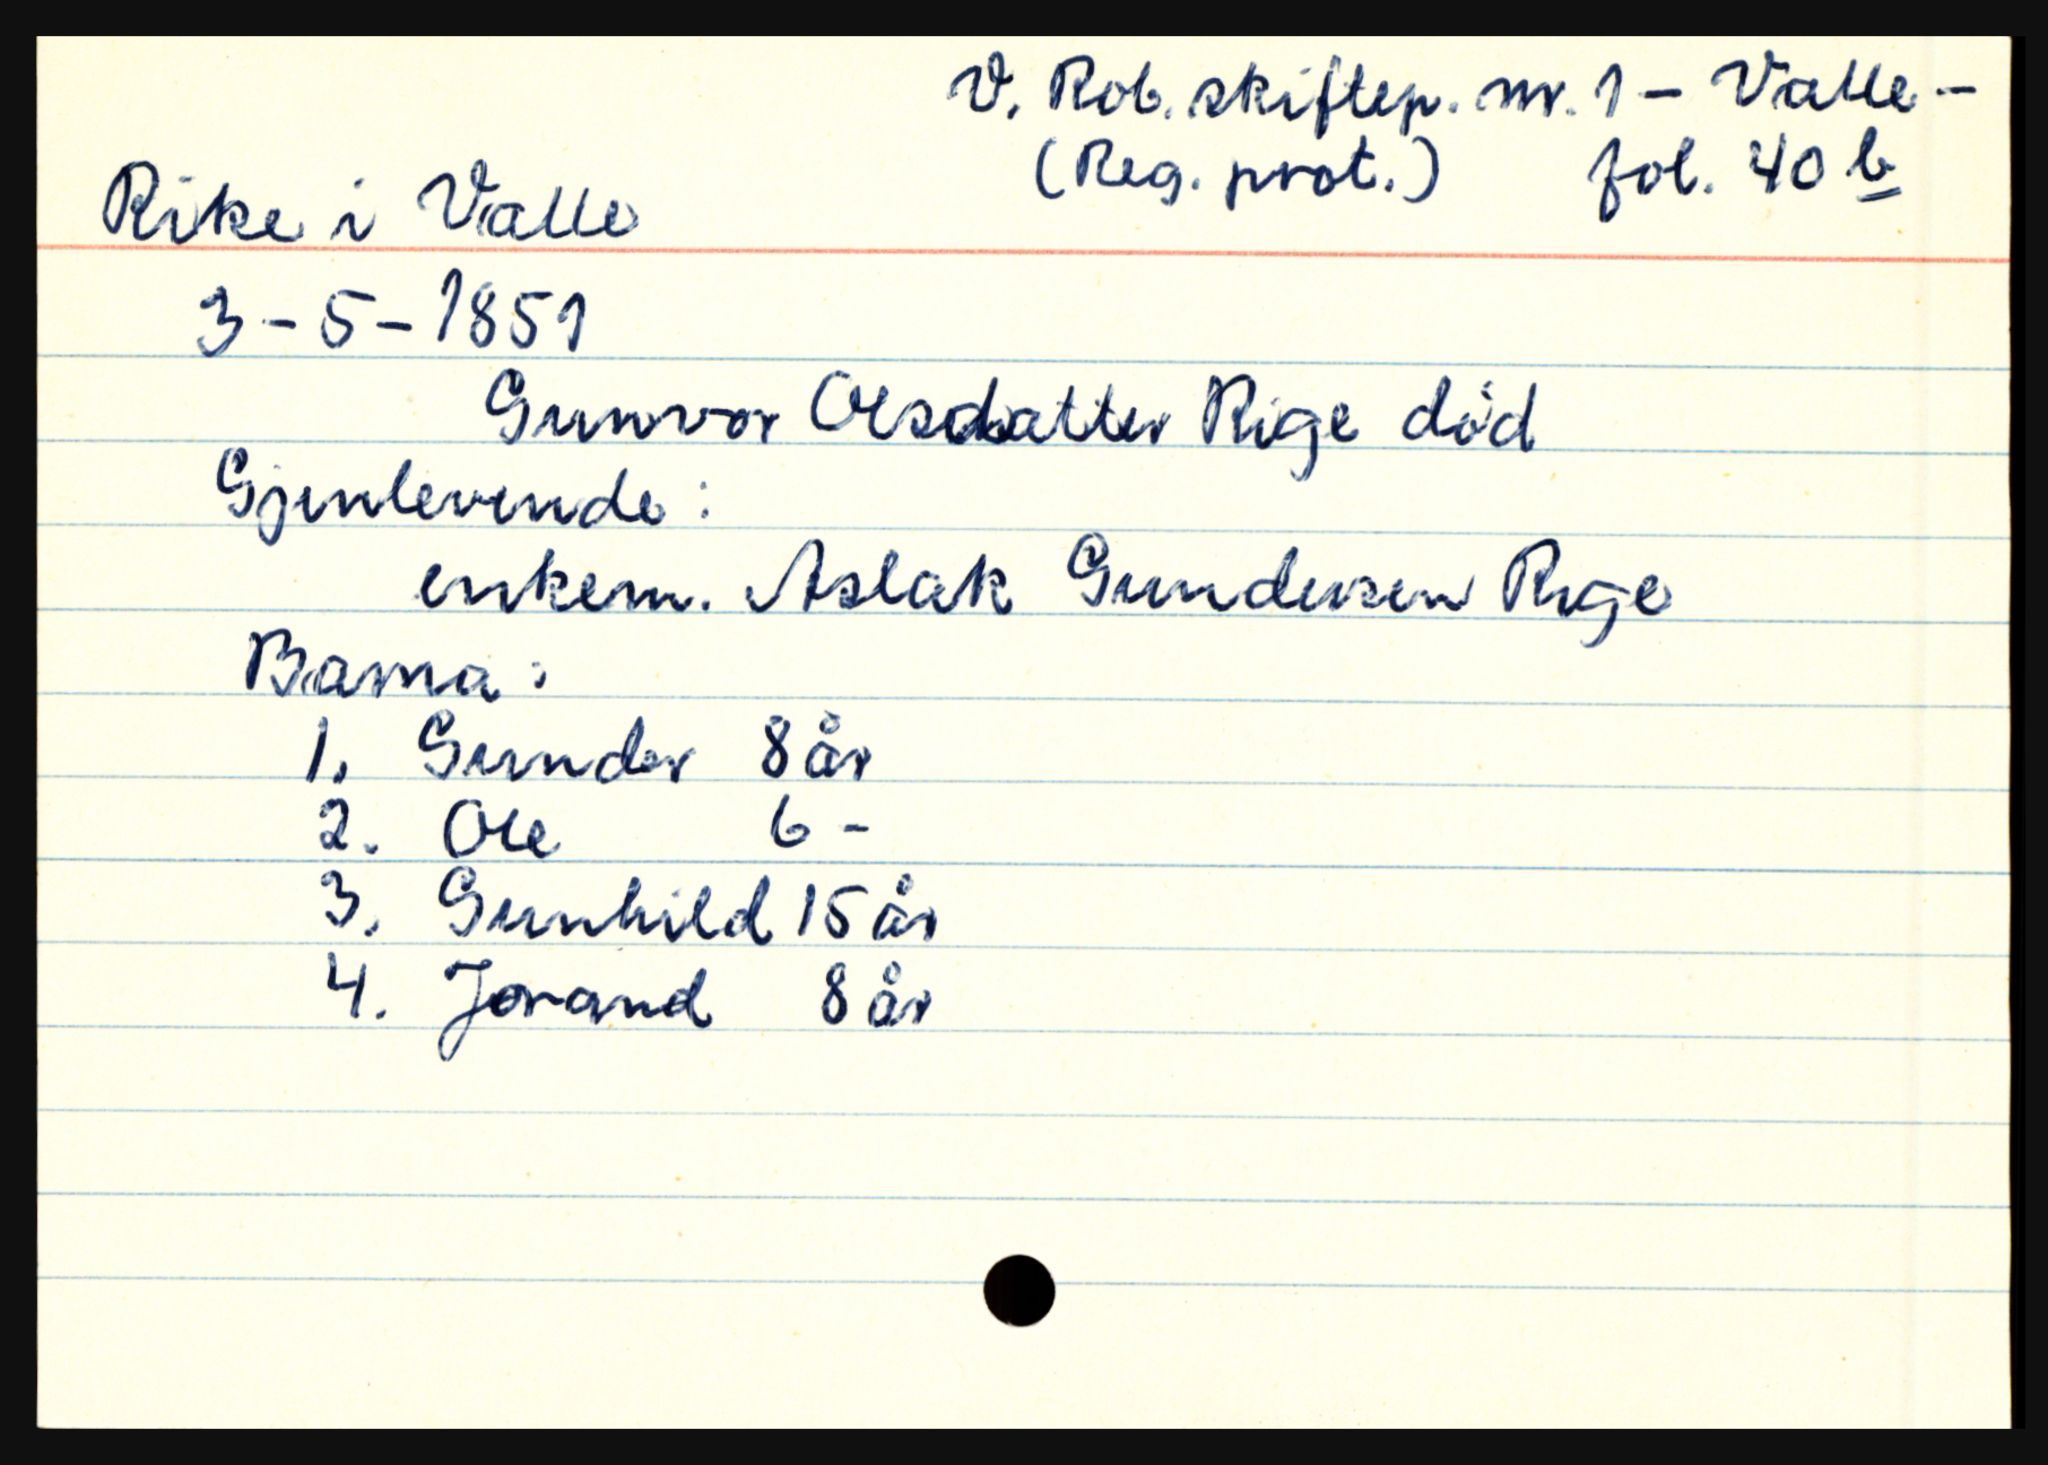 V. Rob. skiftep. nr. 1 - Valle -
(Reg. prot.) fol. 40 b
Rike i Valle
3-5-1851
Gunvor Olsdatter Rige död
Gjenlevende:
enkem. Aslak Gundersen Rige
Barna:
1. Gunder 8 år
2. Ole 6 -
3. Gunhild 15 år
4. Jorand 8 år